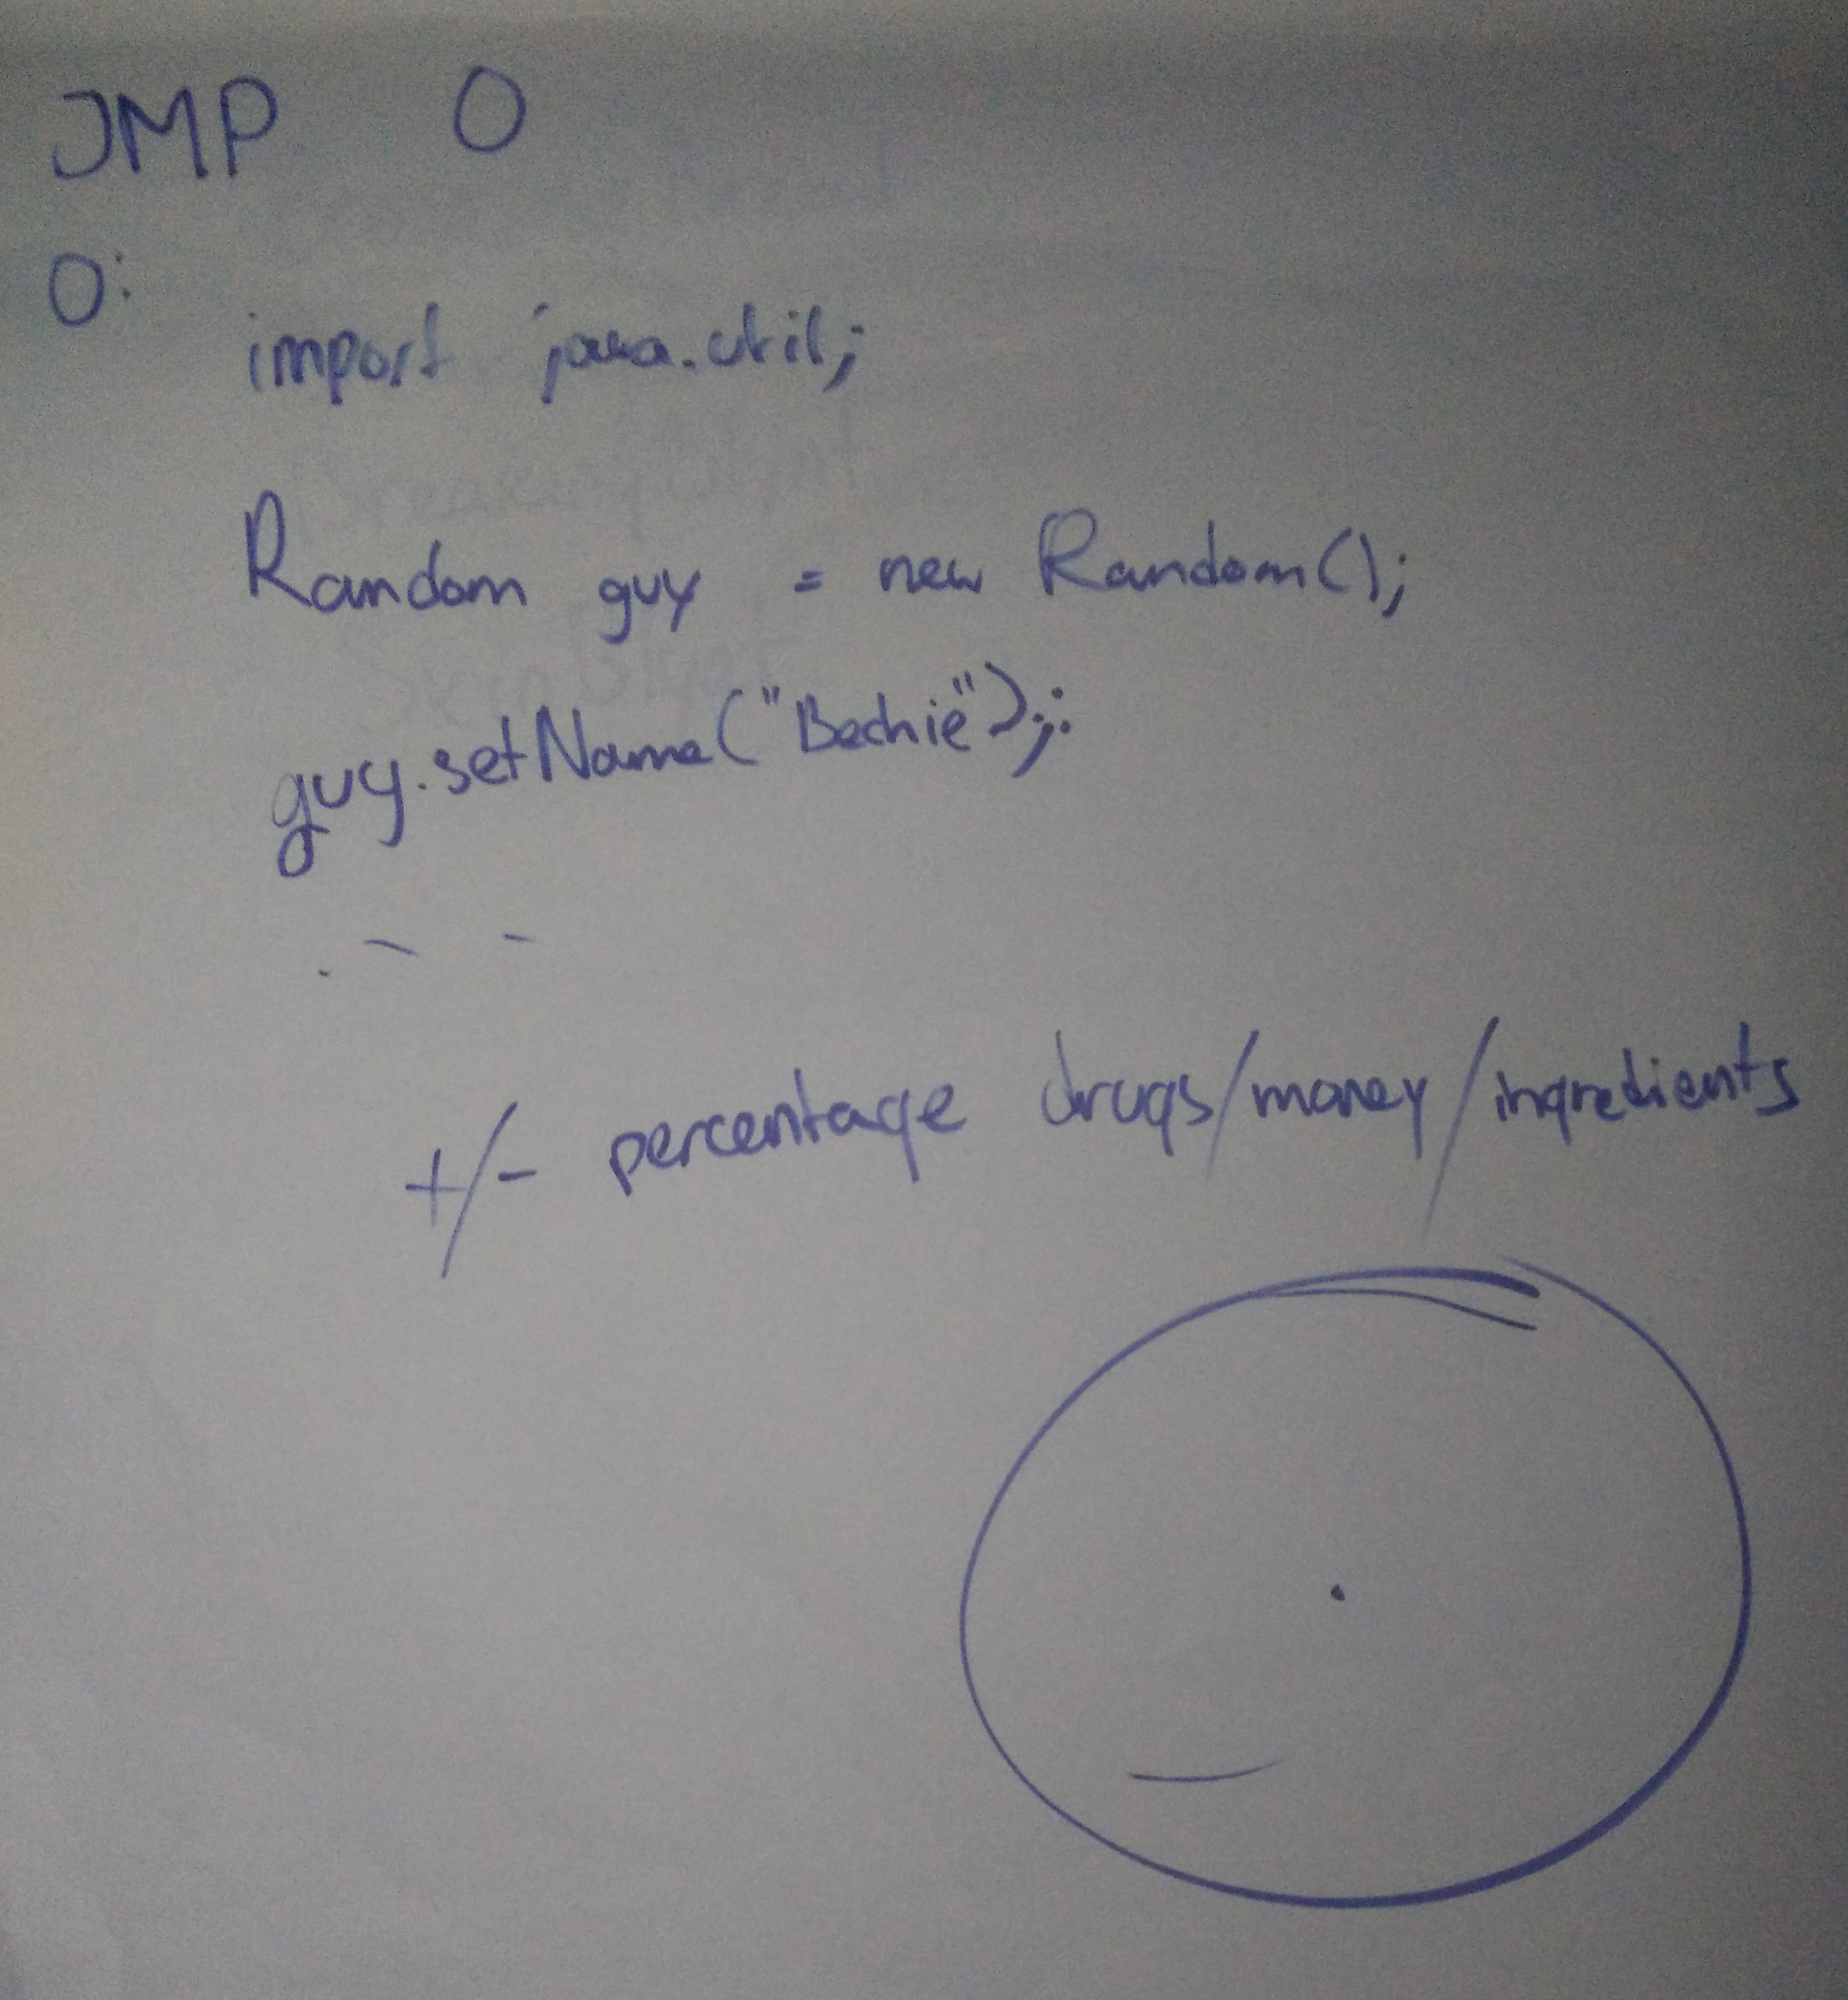 JMP O
O:
import java.util;
Random guy = new Random();
guy.setName("Bechie");
+/- percentage drugs/money/ingredients